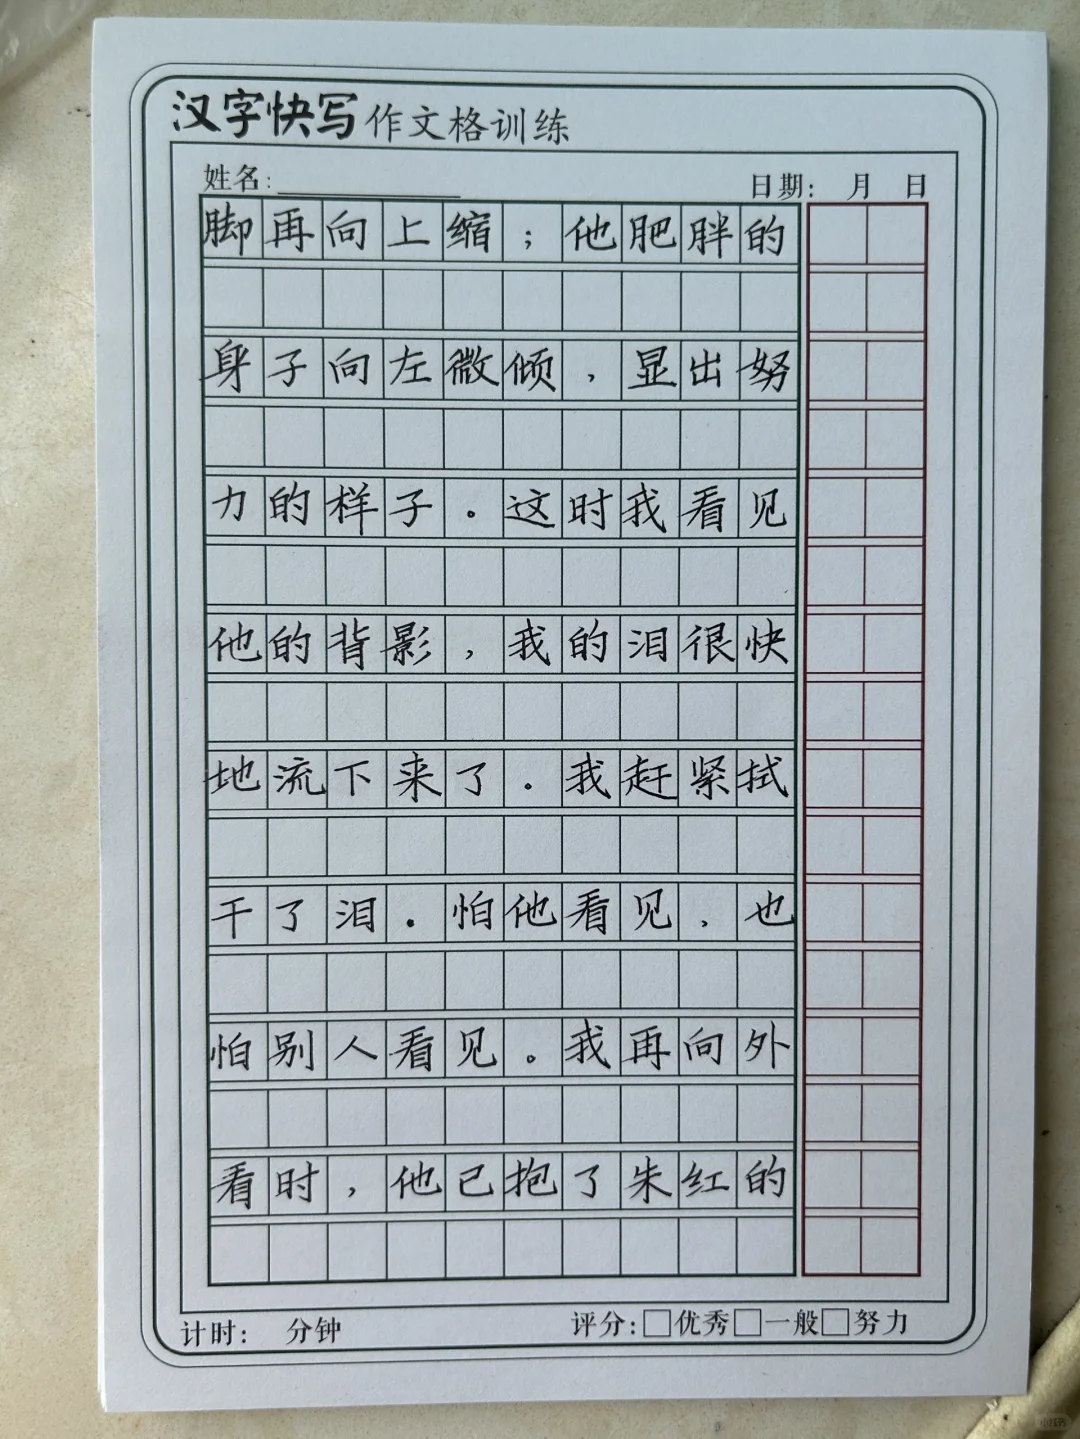 汉字快写作文格训练
姓名:
日期: 月 日
脚再向上缩；他肥胖的
身子向左微倾，显出努
力的样子。这时我看见
他的背影，我的泪很快
地流下来了．我赶紧拭
干了泪．怕他看见，也
怕别人看见。我再向外
看时，他已抱了朱红的
计时: 分钟
评分:□优秀□一般□努力